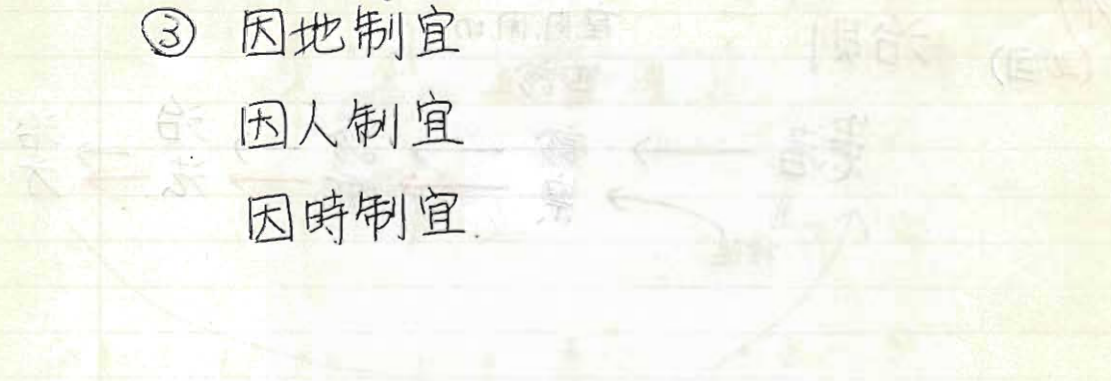 ③ 因地制宜
因人制宜
因時制宜.